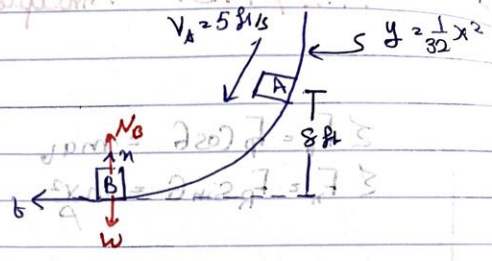 V_A = 5 ft/s
y = \frac{1}{32} x^2
A
8 ft
N_B
n
B
t
W